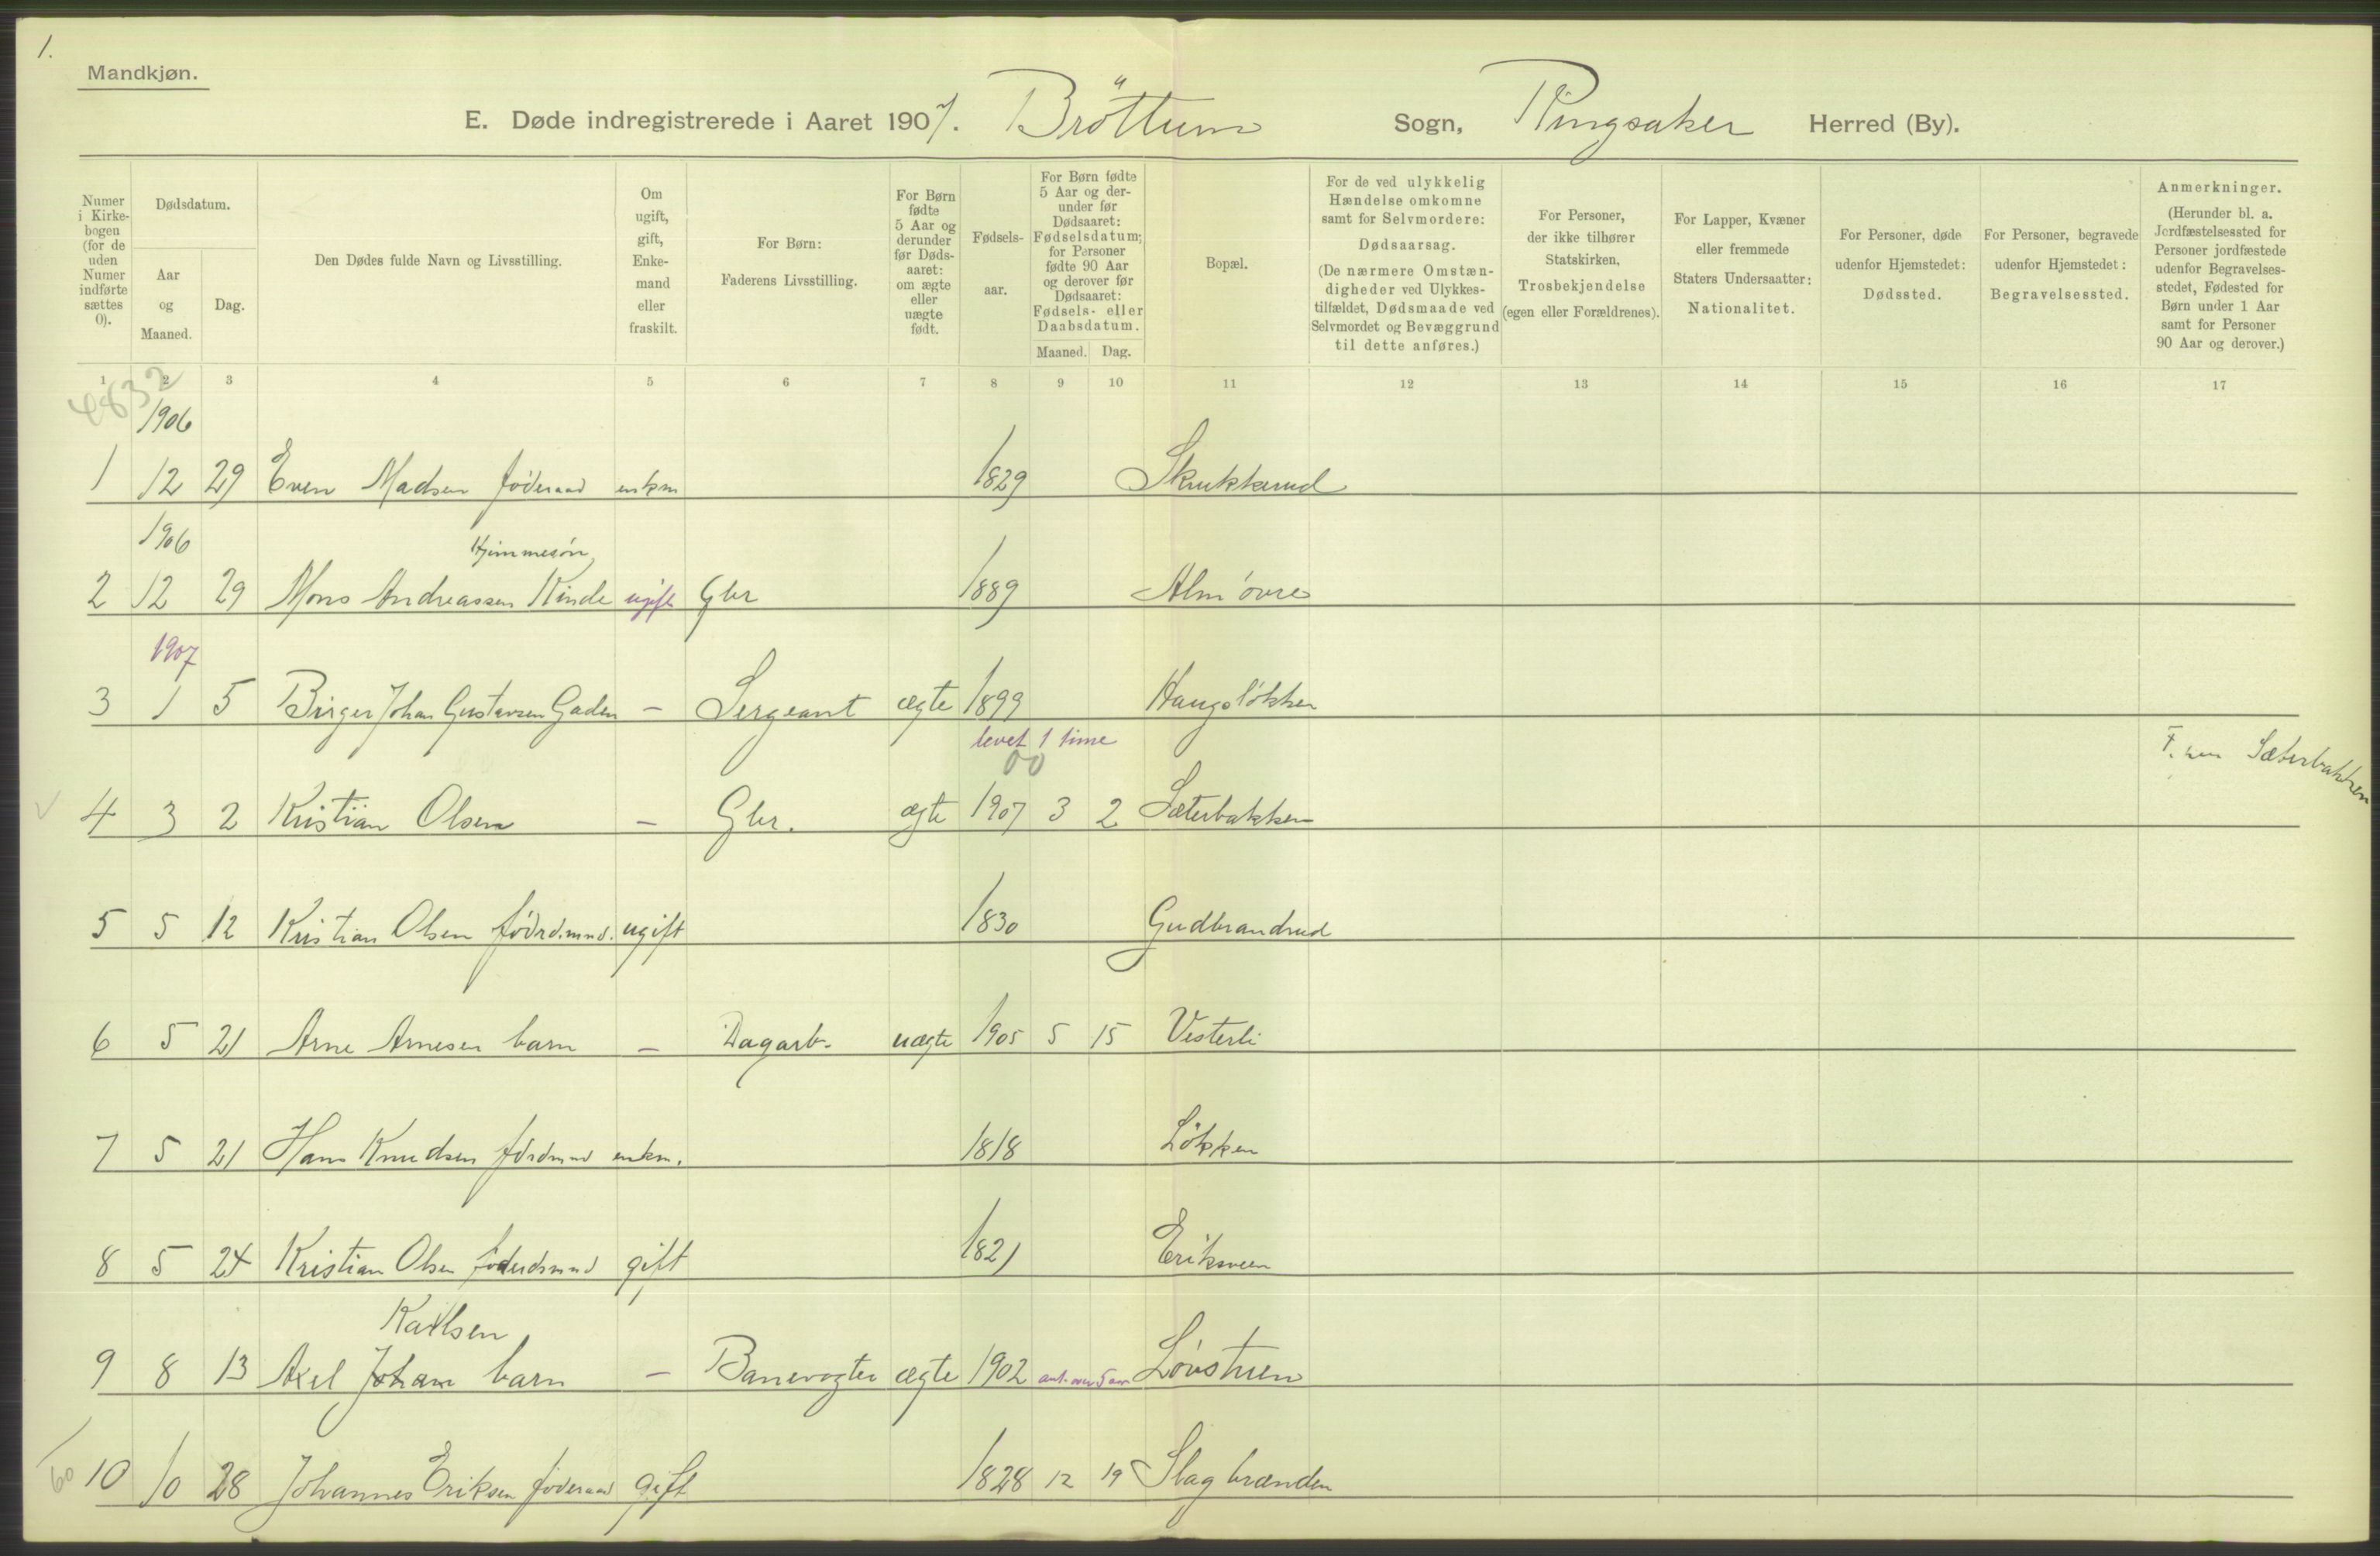 1.
Mandkjøn.
E. Døde indregistrerede i Aaret 1907. Bröttum Sogn, Ringsaker Herred (By).
Numer i Kirkebogen (for de uden Numer indførte sættes 0).
Dødsdatum.
Aar og Maaned.
Dag.
Den Dødes fulde Navn og Livsstilling.
Om ugift, gift, Enkemand eller fraskilt.
For Børn: Faderens Livsstilling.
For Børn fødte 5 Aar og derunder før Dødsaaret: om ægte eller uægte født.
Fødselsaar.
For Børn fødte 5 Aar og derunder før Dødsaaret: Fødselsdatum; for Personer fødte 90 Aar og derover før Dødsaaret: Fødsels- eller Daabsdatum.
Maaned. Dag.
Bopæl.
For de ved ulykkelig Hændelse omkomne samt for Selvmordere: Dødsaarsag. (De nærmere Omstændigheder ved Ulykkestilfældet, Dødsmaade ved Selvmordet og Bevæggrund til dette anføres.)
For Personer, der ikke tilhører Statskirken, Trosbekjendelse (egen eller Forældrenes).
For Lapper, Kvæner eller fremmede Staters Undersaatter: Nationalitet.
For Personer, døde udenfor Hjemstedet: Dødssted.
For Personer, begravede udenfor Hjemstedet: Begravelsessted.
Anmerkninger. (Herunder bl. a. Jordfæstelsessted for Personer jordfæstede udenfor Begravelsesstedet, Fødested for Børn under 1 Aar samt for Personer 90 Aar og derover.)
1 2 3 4 5 6 7 8 9 10 11 12 13 14 15 16 17
4832
1906
1 12 29 Even Madsen föderaad enkm 1829 Skrukkerud
1906
Hjemmesön,
2 12 29 Mons Andreassen Kinde ugift Gbr 1889 Alm övre
1907
3 1 5 Birger Johan Gustavsen Gaden — Sergeant ægte 1899 Haugslökken
levet 1 time
00
F. Sæterbakken
4 3 2 Kristian Olsen — Gbr. ægte 1907 3 2 Sæterbakken
5 5 12 Kristian Olsen födrd.mnd. ugift 1830 Gudbrandrud
6 5 21 Arne Arnesen barn — Dagarb. uægte 1905 5 15 Vesterli
7 5 21 Hans Knudsen födrdmnd enkm. 1818 Lökken
8 5 24 Kristian Olsen föderdsmnd gift 1821 Eriksveen
Karlsen
9 8 13 Axel Johan barn — Banevogter ægte 1902 ant. over 5 aar Lövstuen
60 10 10 28 Johannes Eriksen föderaad gift 1828 12 19 Slagbrænden